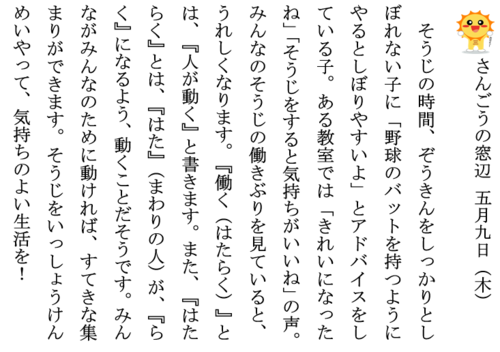 さんごうの窓辺　五月九日（木）
　そうじの時間、ぞうきんをしっかりとし
ぼれない子に「野球のバットを持つように
やるとしぼりやすいよ」とアドバイスをし
ている子。ある教室では「きれいになった
ね」「そうじをすると気持ちがいいね」の声。
みんなのそうじの働きぶりを見ていると、
うれしくなります。『働く（はたらく）』と
は、『人が動く』と書きます。また、『はた
らく』とは、『はた』（まわりの人）が、『ら
く』になるよう、動くことだそうです。みん
ながみんなのために動ければ、すてきな集
まりができます。そうじをいっしょうけん
めいやって、気持ちのよい生活を！